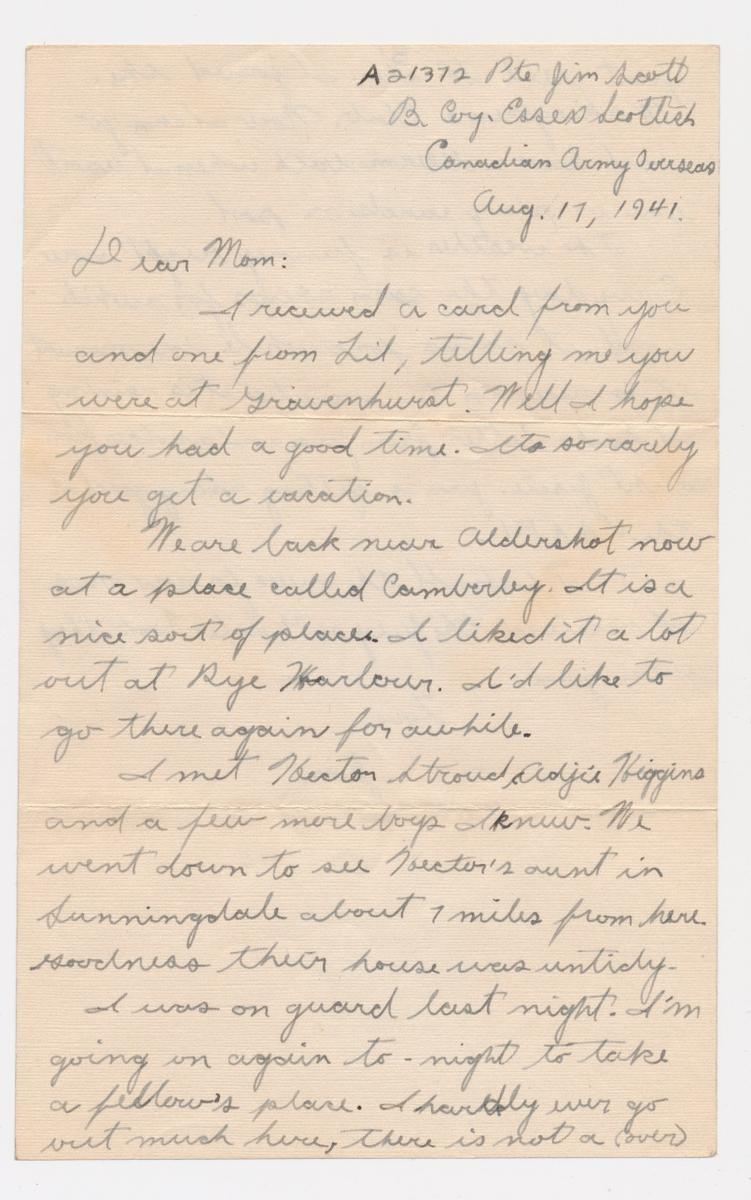 A21372 Pte Jim Scott
B. Coy. Essex Scottish
Canadian Army Overseas
Aug. 17, 1941.
Dear Mom:
I received a card from you
and one from Lil, telling me you
were at Gravenhurst. Well I hope
you had a good time. Its so rarely
you get a vacation.
We are back near Aldershot now
at a place called Camberley. It is a
nice sort of place. I liked it a lot
out at Rye Harbour. I'd like to
go there again for awhile.
I met Hector Stroud, Adjie Higgins
and a few more boys I knew. We
went down to see Hector's aunt in
Sunningdale about 7 miles from here.
Goodness their house was untidy.
I was on guard last night. I'm
going on again to-night to take
a fellow's place. I hardly ever go
out much here, there is not a (over)